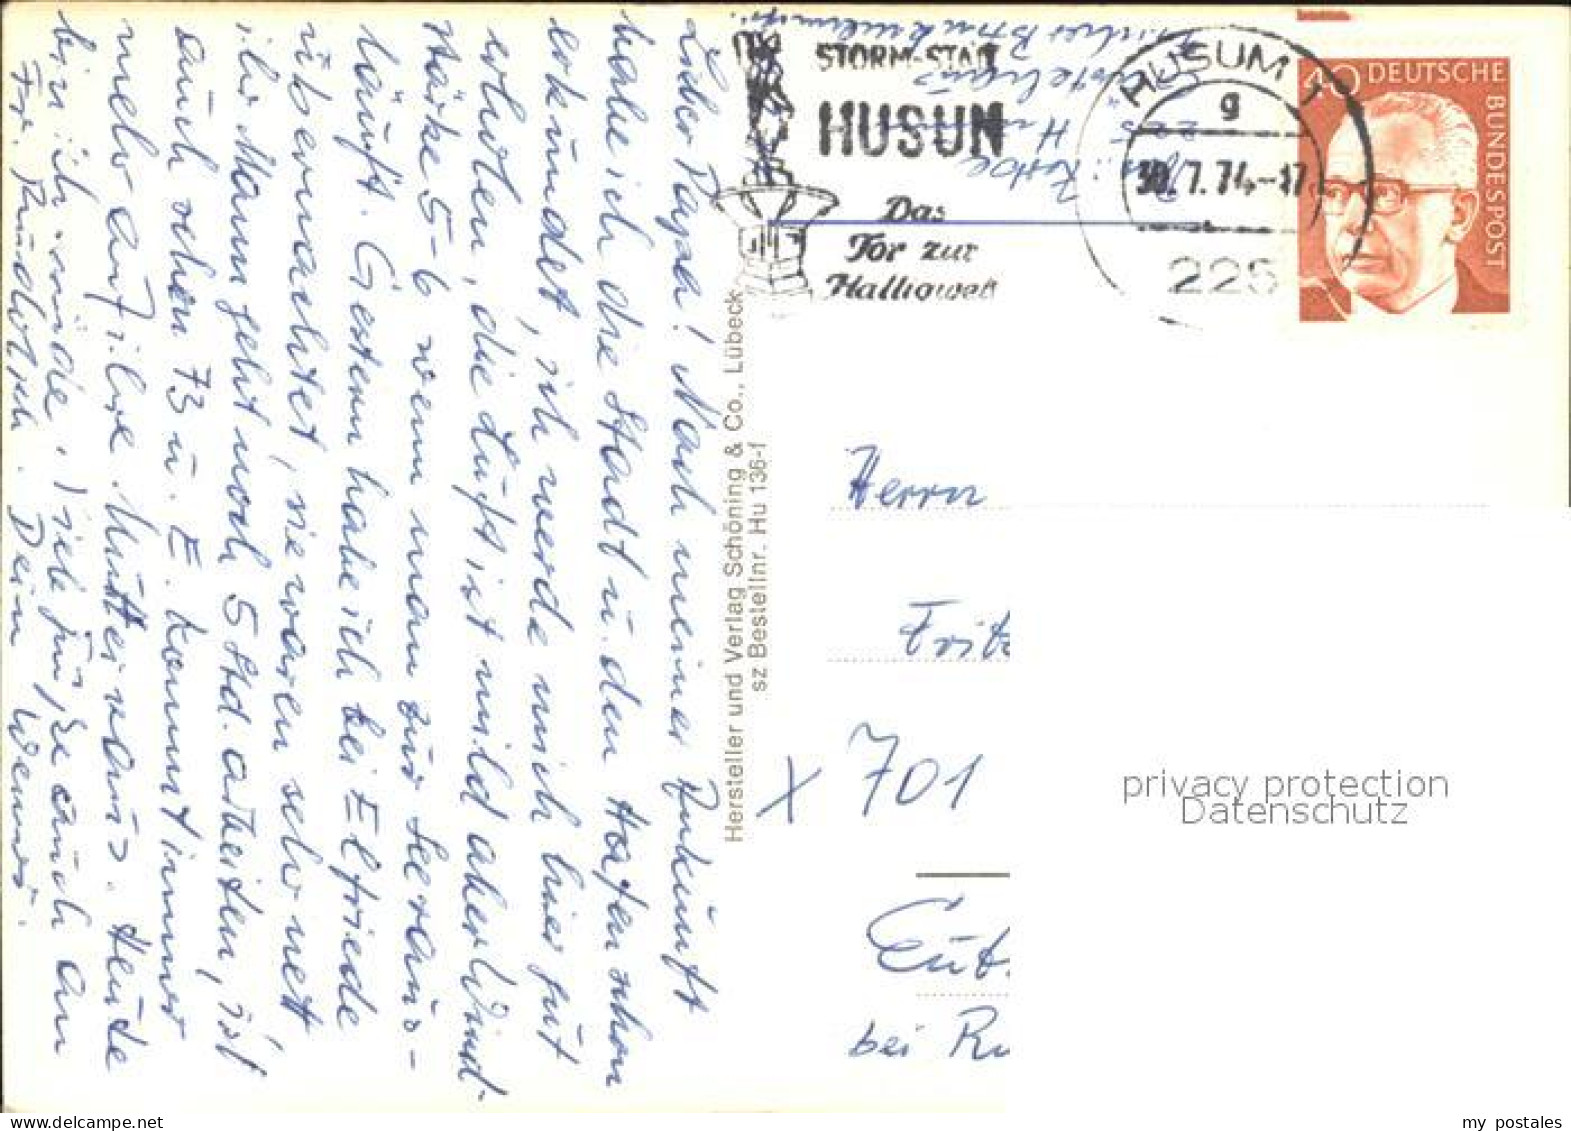 Lieber Papa! Nach meiner Ankunft
habe ich die Stadt u. den Hafen schon
erkundet, ich werde mich hier gut
erholen, die Luft ist mild aber Wind-
stärke 5-6 wenn man zur See raus-
läuft. Gestern habe ich bei Elfriede
übernachtet, sie waren sehr nett
ihr Mann geht noch 5 Std. arbeiten, ist
auch schon 73 u. E. kommt immer
mehr auf ihre Mutter raus. Heute
bin ich müde. Grüße auch an
Fr. Deine
Hersteller und Verlag Schöning & Co., Lübeck
sz Bestellnr. Hu 136-f
STORM-STADT
HUSUM
Das
Tor zur
Halligwelt
HUSUM 1
g
30.7.74-17
225
40 DEUTSCHE
BUNDESPOST
Herrn
Fritz
x 701
bei
privacy protection
Datenschutz
my postales